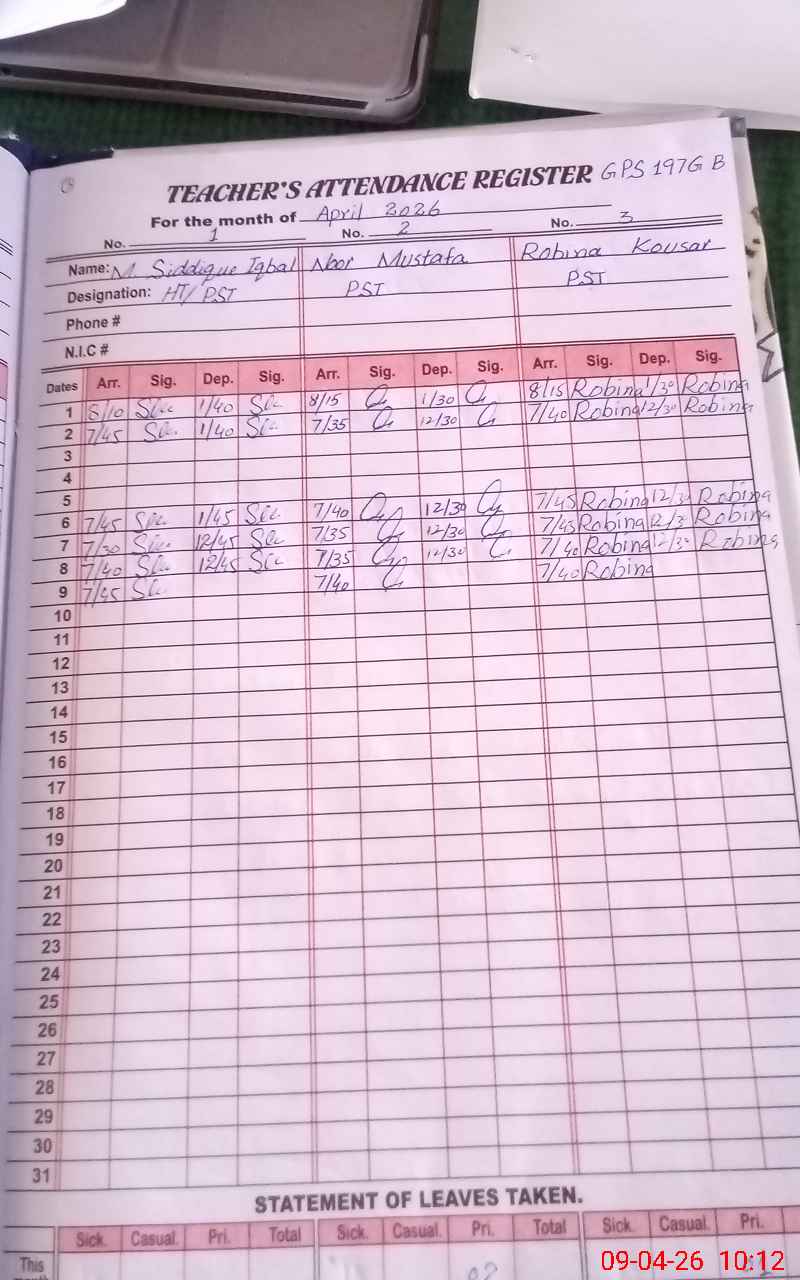 TEACHER'S ATTENDANCE REGISTER GPS 197G B
For the month of April 2026
No. 1 No. 2 No. 3
Name: M Siddique Iqbal Noor Mustafa Robina Kousar
Designation: HT/PST PST PST
Phone #
N.I.C #
Dates Arr. Sig. Dep. Sig. Arr. Sig. Dep. Sig. Arr. Sig. Dep. Sig.
1 8/10 1/40 8/15 1/30 8/15 Robina 1/30 Robina
2 7/45 1/40 7/35 12/30 7/40 Robina 12/30 Robina
3
4
5
6 7/45 1/45 7/40 12/30 7/45 Robina 12/30 Robina
7 7/30 12/45 7/35 12/30 7/45 Robina 12/3 Robina
8 7/40 12/45 7/35 12/30 7/40 Robina 12/30 Robina
9 7/45 7/40 7/40 Robina
10
11
12
13
14
15
16
17
18
19
20
21
22
23
24
25
26
27
28
29
30
31
STATEMENT OF LEAVES TAKEN.
Sick. Casual. Pri. Total Sick. Casual. Pri. Total Sick. Casual. Pri.
This
09-04-26 10:12